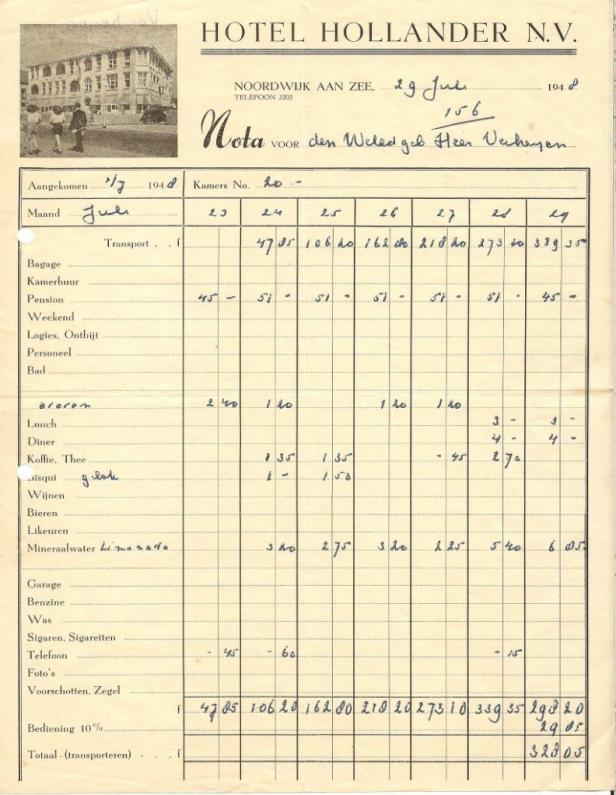 HOTEL HOLLANDER N.V.
NOORDWIJK AAN ZEE, 29 Juli 1948
TELEFOON 2202
156
Nota VOOR den Weledgeb Heer Verheyen
Aangekomen 1948 Kamers No. 20 -
Maand Juli 23 24 25 26 27 28 29
Transport . . f 47 85 106 20 162 80 218 20 273 10 339 35
Bagage
Kamerhuur
Pension 45 - 51 - 51 - 51 - 51 - 51 - 45 -
Weekend
Logies, Ontbijt
Personeel
Bad
2 40 1 20 1 20 1 20
Lunch 3 - 3 -
Diner 4 - 4 -
Koffie, Thee 1 35 1 35 - 45 2 70
Bisqui 1 - 1 50
Wijnen
Bieren
Likeuren
Mineraalwater Limonade 3 20 2 75 3 20 2 25 5 40 6 85
Garage
Benzine
Was
Sigaren, Sigaretten
Telefoon - 45 - 60 - 15
Foto's
Voorschotten, Zegel
f 47 85 106 20 162 80 218 20 273 10 339 35 298 20
Bediening 10% 29 85
Totaal - (transporteren) . . . f 328 05